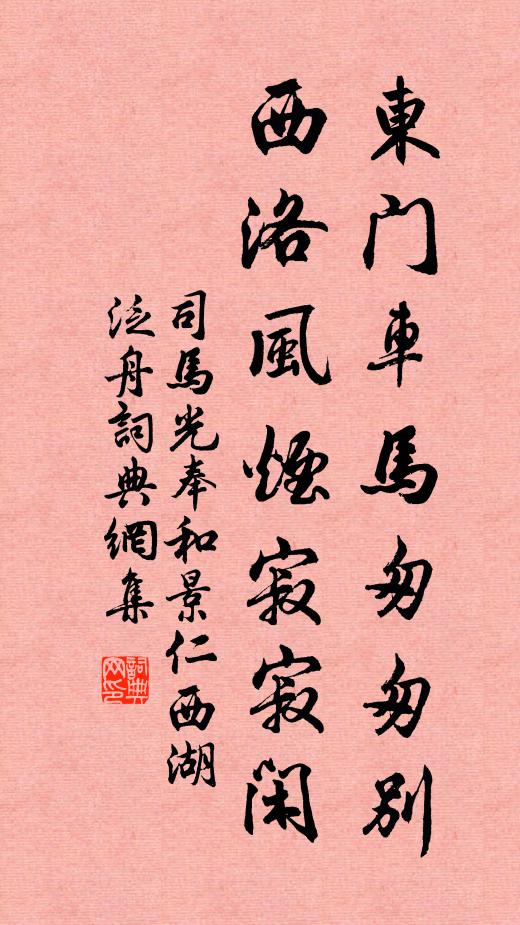 東門車馬匆匆別
西洛風煙寂寂閑
司馬光奉和景仁西湖
泛舟詞典網集
詞典
网印